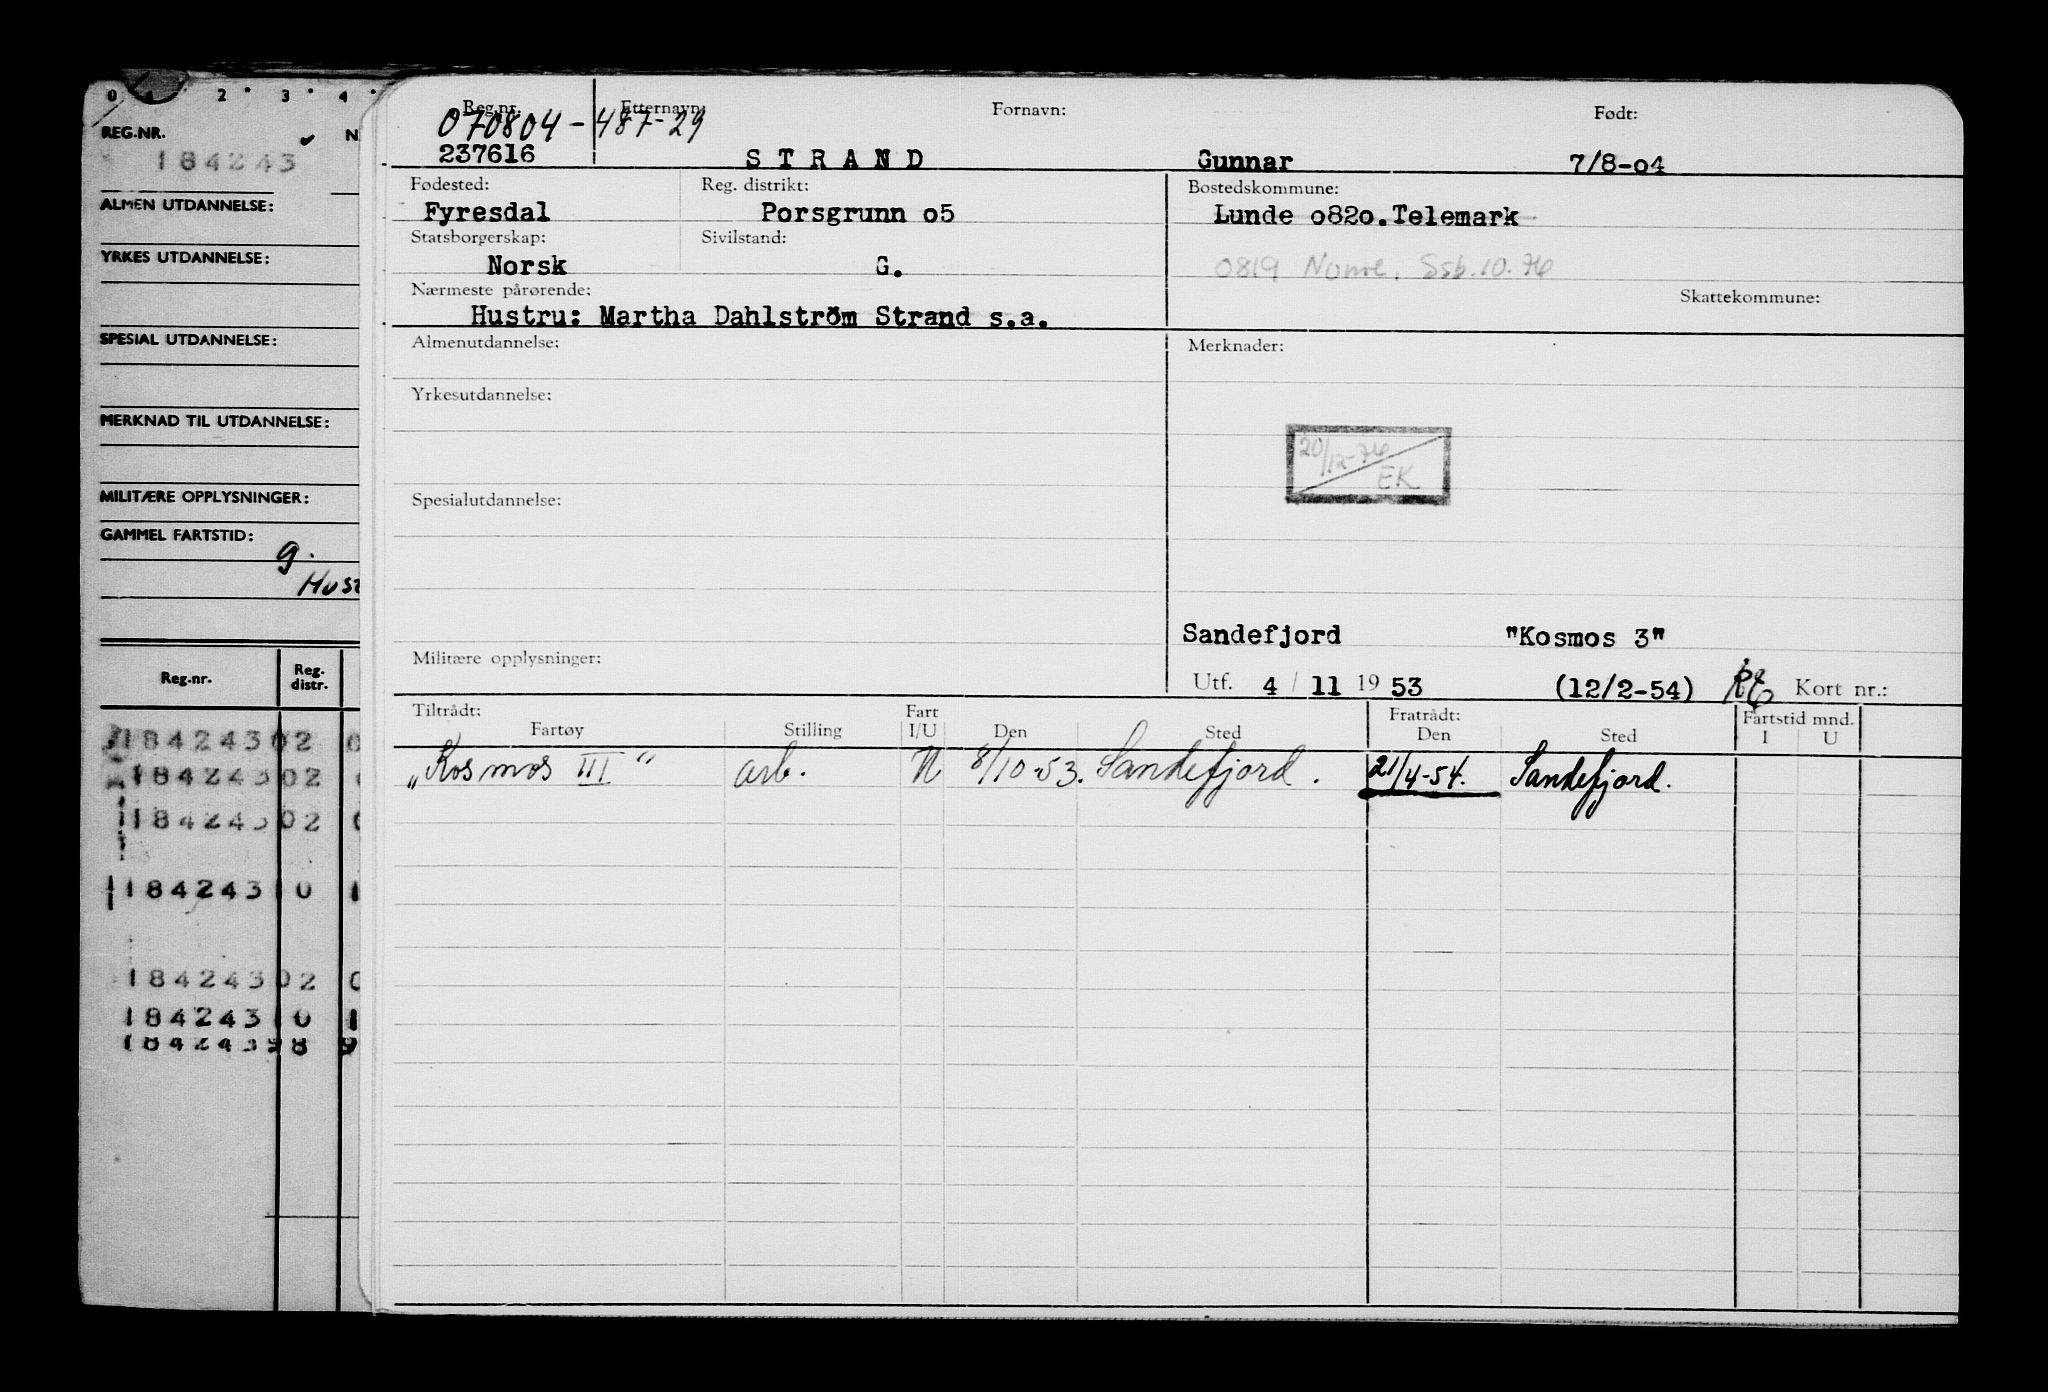 0 1 2 3 4
REG.NR.
184243
ALMEN UTDANNELSE:
YRKES UTDANNELSE:
SPESIAL UTDANNELSE:
MERKNAD TIL UTDANNELSE:
MILITÆRE OPPLYSNINGER:
GAMMEL FARTSTID:
g.
Reg.nr. Reg. distr.
184243 02
184243 02
184243 02
184243 10 1
184243 02
184243 10 1
184243 98 9
Reg.nr. Etternavn: Fornavn: Født:
070804-487-29
237616 STRAND Gunnar 7/8-o4
Fødested: Reg. distrikt: Bostedskommune:
Fyresdal Porsgrunn o5 Lunde o82o.Telemark
Statsborgerskap: Sivilstand:
Norsk G. 0819 Nome. Ssb.10.76
Nærmeste pårørende: Skattekommune:
Hustru: Martha Dahlström Strand s.a.
Almenutdannelse: Merknader:
Yrkesutdannelse:
20/12-76
EK
Spesialutdannelse:
Sandefjord "Kosmos 3"
Militære opplysninger:
Utf. 4 / 11 19 53 (12/2-54) Kort nr.:
Tiltrådt: Fart Fratrådt: Fartstid mnd.
Fartøy Stilling I/U Den Sted Den Sted I U
„Kosmos III" arb. U 8/10-53. Sandefjord. 21/4-54. Sandefjord.